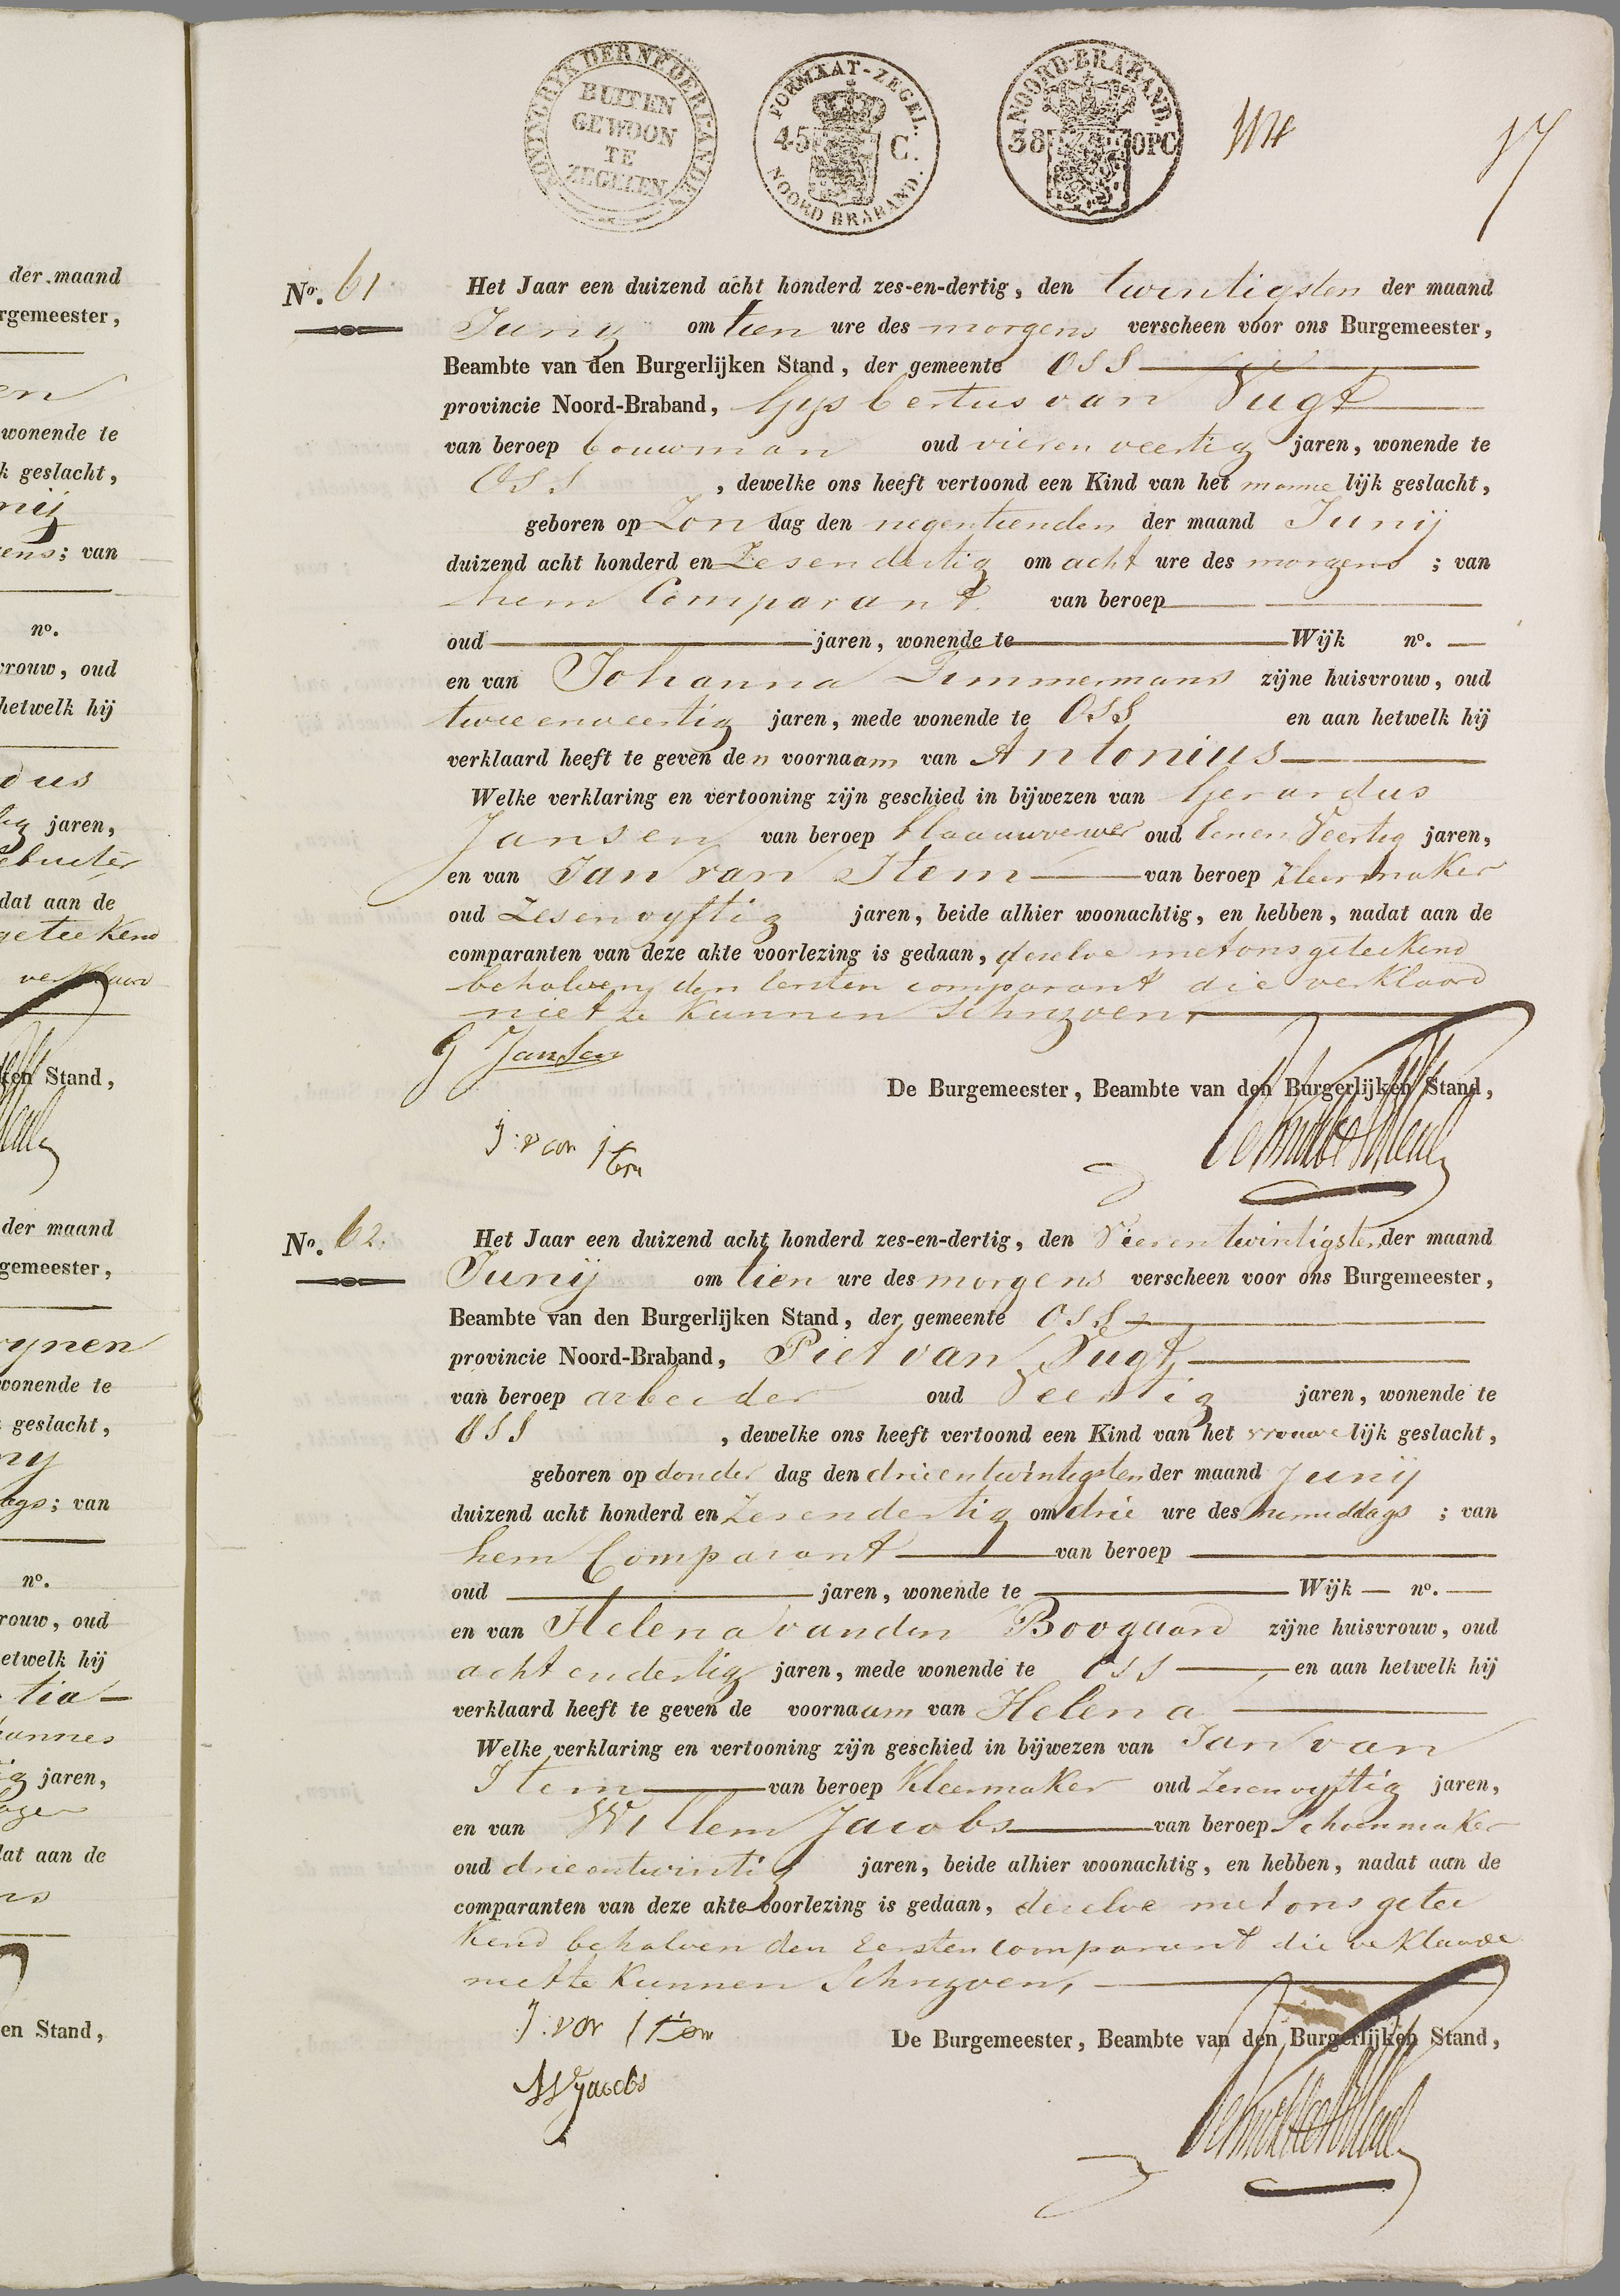 KONINGRYK DER NEDERLANDEN
BUITEN
GEWOON
TE
ZEGELEN
FORMAAT-ZEGEL.
45 C.
NOORD BRABAND.
NOORD-BRABAND.
38 OPC
17
der maand
rgemeester,
en
wonende te
k geslacht,
nij
ens; van
no.
vrouw, oud
hetwelk hij
dus
jaren,
dat aan de
geteekend
ten Stand,
der maand
gemeester,
ynen
wonende te
geslacht,
ny
ags; van
no.
rouw, oud
etwelk hij
tia
hannes
ig jaren,
dat aan de
en Stand,
No. 61 Het Jaar een duizend acht honderd zes-en-dertig, den twintigsten der maand
Juny om tien ure des morgens verscheen voor ons Burgemeester,
Beambte van den Burgerlijken Stand, der gemeente Oss
provincie Noord-Braband, Gysbertus van Vugt
van beroep bouwman oud vieren veertig jaren, wonende te
Oss, dewelke ons heeft vertoond een Kind van het mannelijk geslacht,
geboren op Zondag den negentienden der maand Junij
duizend acht honderd en Zesendertig om acht ure des morgens; van
hem Comparant van beroep
oud jaren, wonende te Wijk no.
en van Johanna Timmermans zijne huisvrouw, oud
twee enveertig jaren, mede wonende te Oss en aan hetwelk hij
verklaard heeft te geven den voornaam van Antonius
Welke verklaring en vertooning zijn geschied in bijwezen van Gerardus
Jansen van beroep blaauwverwer oud Eenen Veertig jaren,
en van Jan van Item van beroep kleermaker
oud Zesenvyftig jaren, beide alhier woonachtig, en hebben, nadat aan de
comparanten van deze akte voorlezing is gedaan, deselve met ons geteekend
behalven den Eersten comparant die verklaard
niet te kunnen Schryven,
G Jansen
De Burgemeester, Beambte van den Burgerlijken Stand,
J: van Item
No. 62. Het Jaar een duizend acht honderd zes-en-dertig, den Vierentwintigsten der maand
Junij om tien ure des morgens verscheen voor ons Burgemeester,
Beambte van den Burgerlijken Stand, der gemeente Oss
provincie Noord-Braband, Piet van Vugt,
van beroep arbeider oud Veertig jaren, wonende te
Oss, dewelke ons heeft vertoond een Kind van het vrouwelijk geslacht,
geboren op donder dag den drieentwintigsten der maand Junij
duizend acht honderd en Zesendertig om drie ure des namiddags; van
hem Comparant van beroep
oud jaren, wonende te Wijk no.
en van Helena van den Boogaard zijne huisvrouw, oud
acht endertig jaren, mede wonende te Oss en aan hetwelk hij
verklaard heeft te geven de voornaam van Helena
Welke verklaring en vertooning zijn geschied in bijwezen van Jan van
Item van beroep Kleermaker oud Zesenvyftig jaren,
en van Willem Jacobs van beroep Schoenmaker
oud drieentwintig jaren, beide alhier woonachtig, en hebben, nadat aan de
comparanten van deze akte voorlezing is gedaan, deselve met ons getee
kend behalven den Eersten comparant die verklaarde
niet te kunnen Schryven,
J: van Item
De Burgemeester, Beambte van den Burgerlijken Stand,
W Jacobs